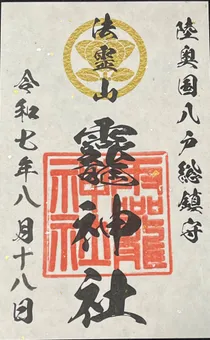 陸奥国八戸総鎮守
法霊山
龗神社
龗神社
令和七年八月十八日